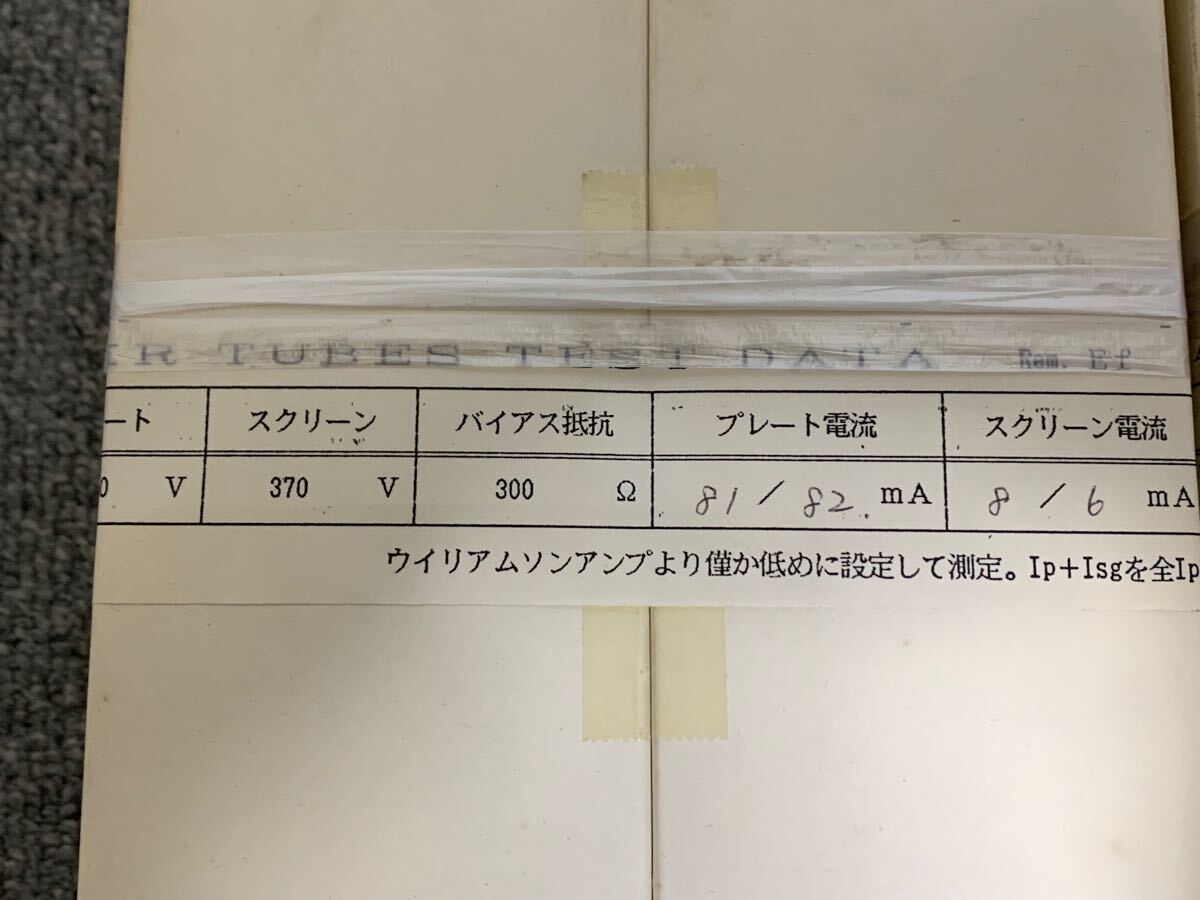 IR TUBES TEST DATA Rem. Ef
ート スクリーン バイアス抵抗 プレート電流 スクリーン電流
0 V 370 V 300 Ω 81 / 82 mA 8 / 6 mA
ウイリアムソンアンプより僅か低めに設定して測定。Ip+Isgを全Ip